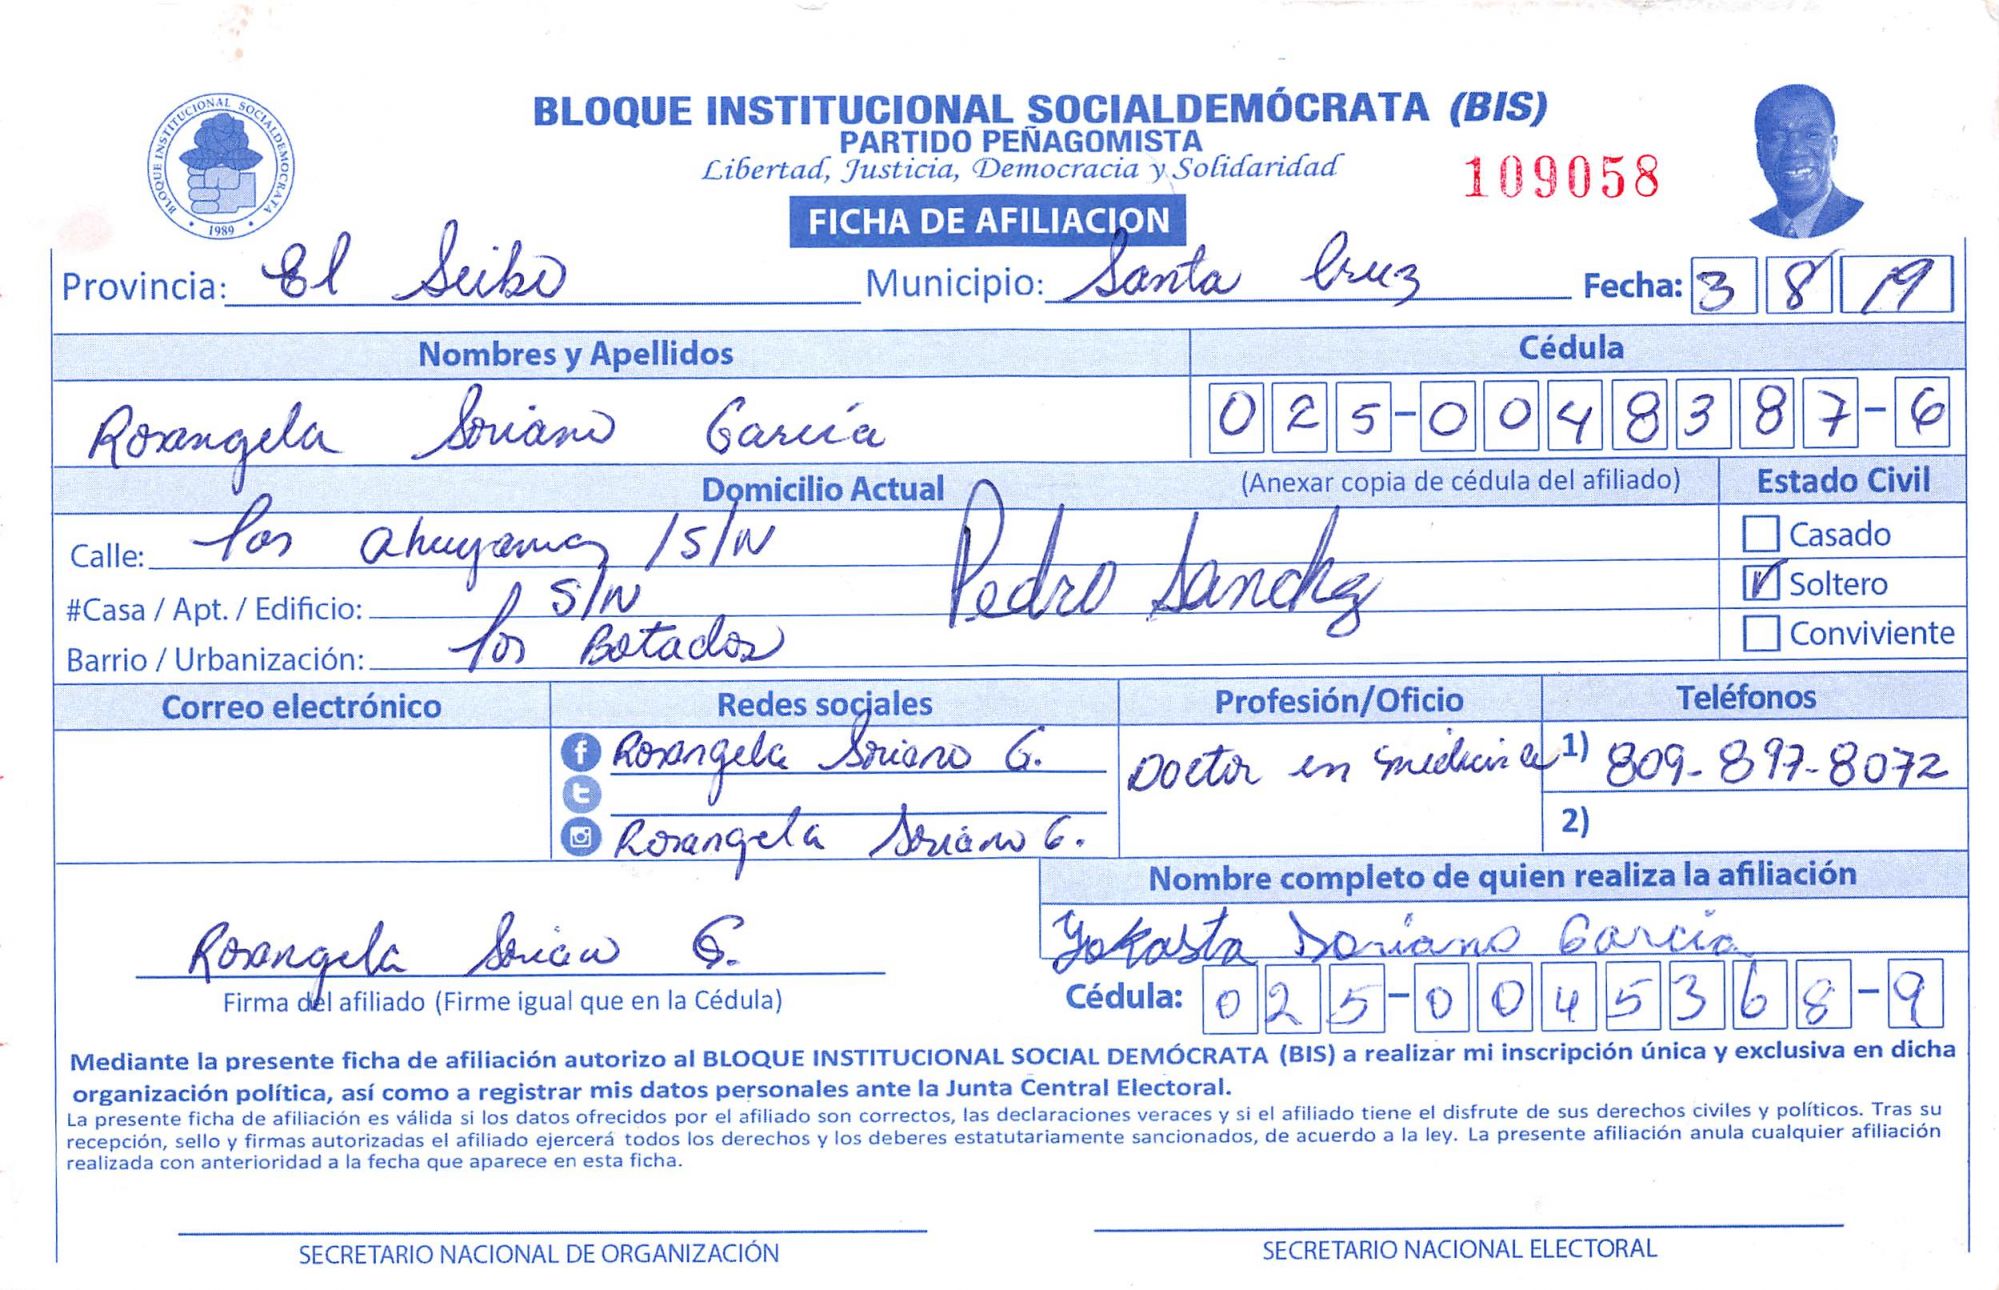 BLOQUE INSTITUCIONAL SOCIALDEMÓCRATA (BIS)
PARTIDO PEÑAGOMISTA
Libertad, Justicia, Democracia y Solidaridad
109058
BLOQUE INSTITUCIONAL SOCIALDEMOCRATA
1989
FICHA DE AFILIACION
Provincia: El Seibo Municipio: Santa Cruz Fecha: 3 8 19
Nombres y Apellidos Cédula
Rosangela Soriano García 025-0048387-6
Domicilio Actual (Anexar copia de cédula del afiliado) Estado Civil
Calle: los ahuyamas /S/N Pedro Sanchez
Casado
#Casa / Apt. / Edificio: S/N
Soltero
Barrio / Urbanización: los Botados
Conviviente
Correo electrónico Redes sociales Profesión/Oficio Teléfonos
Rosangela Soriano G. Doctor en medicina 1) 809-897-8072
2)
Rosangela Soriano G.
Nombre completo de quien realiza la afiliación
Yokasta Soriano Garcia
Rosangela Soriano G.
Firma del afiliado (Firme igual que en la Cédula) Cédula: 025-0045368-9
Mediante la presente ficha de afiliación autorizo al BLOQUE INSTITUCIONAL SOCIAL DEMÓCRATA (BIS) a realizar mi inscripción única y exclusiva en dicha
organización política, así como a registrar mis datos personales ante la Junta Central Electoral.
La presente ficha de afiliación es válida si los datos ofrecidos por el afiliado son correctos, las declaraciones veraces y si el afiliado tiene el disfrute de sus derechos civiles y políticos. Tras su
recepción, sello y firmas autorizadas el afiliado ejercerá todos los derechos y los deberes estatutariamente sancionados, de acuerdo a la ley. La presente afiliación anula cualquier afiliación
realizada con anterioridad a la fecha que aparece en esta ficha.
SECRETARIO NACIONAL DE ORGANIZACIÓN SECRETARIO NACIONAL ELECTORAL